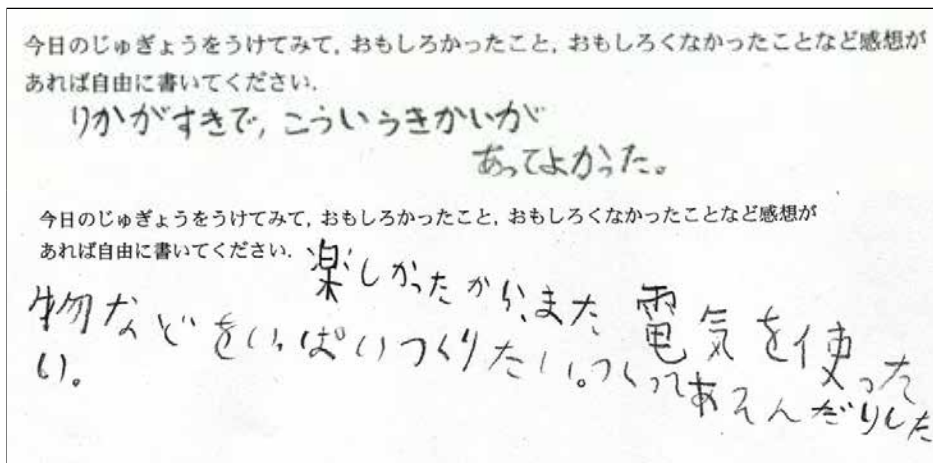 今日のじゅぎょうをうけてみて，おもしろかったこと，おもしろくなかったことなど感想が
あれば自由に書いてください．
りかがすきで，こういうきかいが
あってよかった。
今日のじゅぎょうをうけてみて，おもしろかったこと，おもしろくなかったことなど感想が
あれば自由に書いてください．
楽しかったから、また電気を使った
物などをいっぱいつくりたい。つくってあそんだりした
い。